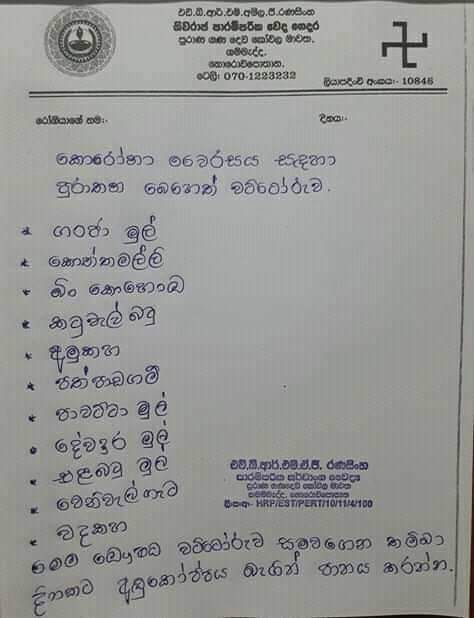 එච්.බී.ආර්.එම්.අමිල.ජී.රණසිංහ
සිවරාජ පාරම්පරික වෙද ගෙදර
පුරාණ ගණ දෙවි කෝවිල මාවත,
ගම්මැද්ද,
හොරොව්පොතාන.
ටෙලි: 070-1223232
ලියාපදිංචි අංකය:- 10846
රෝගියාගේ නම:-
දිනය:-
කොරෝනා වෛරසය සඳහා
පුරාතන බෙහෙත් වට්ටෝරුව.
* ගංජා මුල්
* කොත්තමල්ලි
* බිං කොහොඹ
* කටුවැල් බටු
* අමුකහ
* පත්පාඩගම්
* පාවට්ටා මුල්
* දේවදුර මුල්
* එළබටු මුල්
* වෙනිවැල්ගැට
* වදකහ
එච්.බී.ආර්.එම්.ඒ.ජී. රණසිංහ
පාරම්පරික සර්වාංග වෛද්‍ය
පුරාණ ගණදෙවි කෝවිල මාවත
ගම්මැද්ද, හොරොව්පොතාන
ලි.අංක- HRP/EST/PERT/10/11/4/100
මෙම ඖෂධ වට්ටෝරුව සමවගෙන තම්බා
දිනකට අඩුකෝප්පය බැගින් පානය කරන්න.